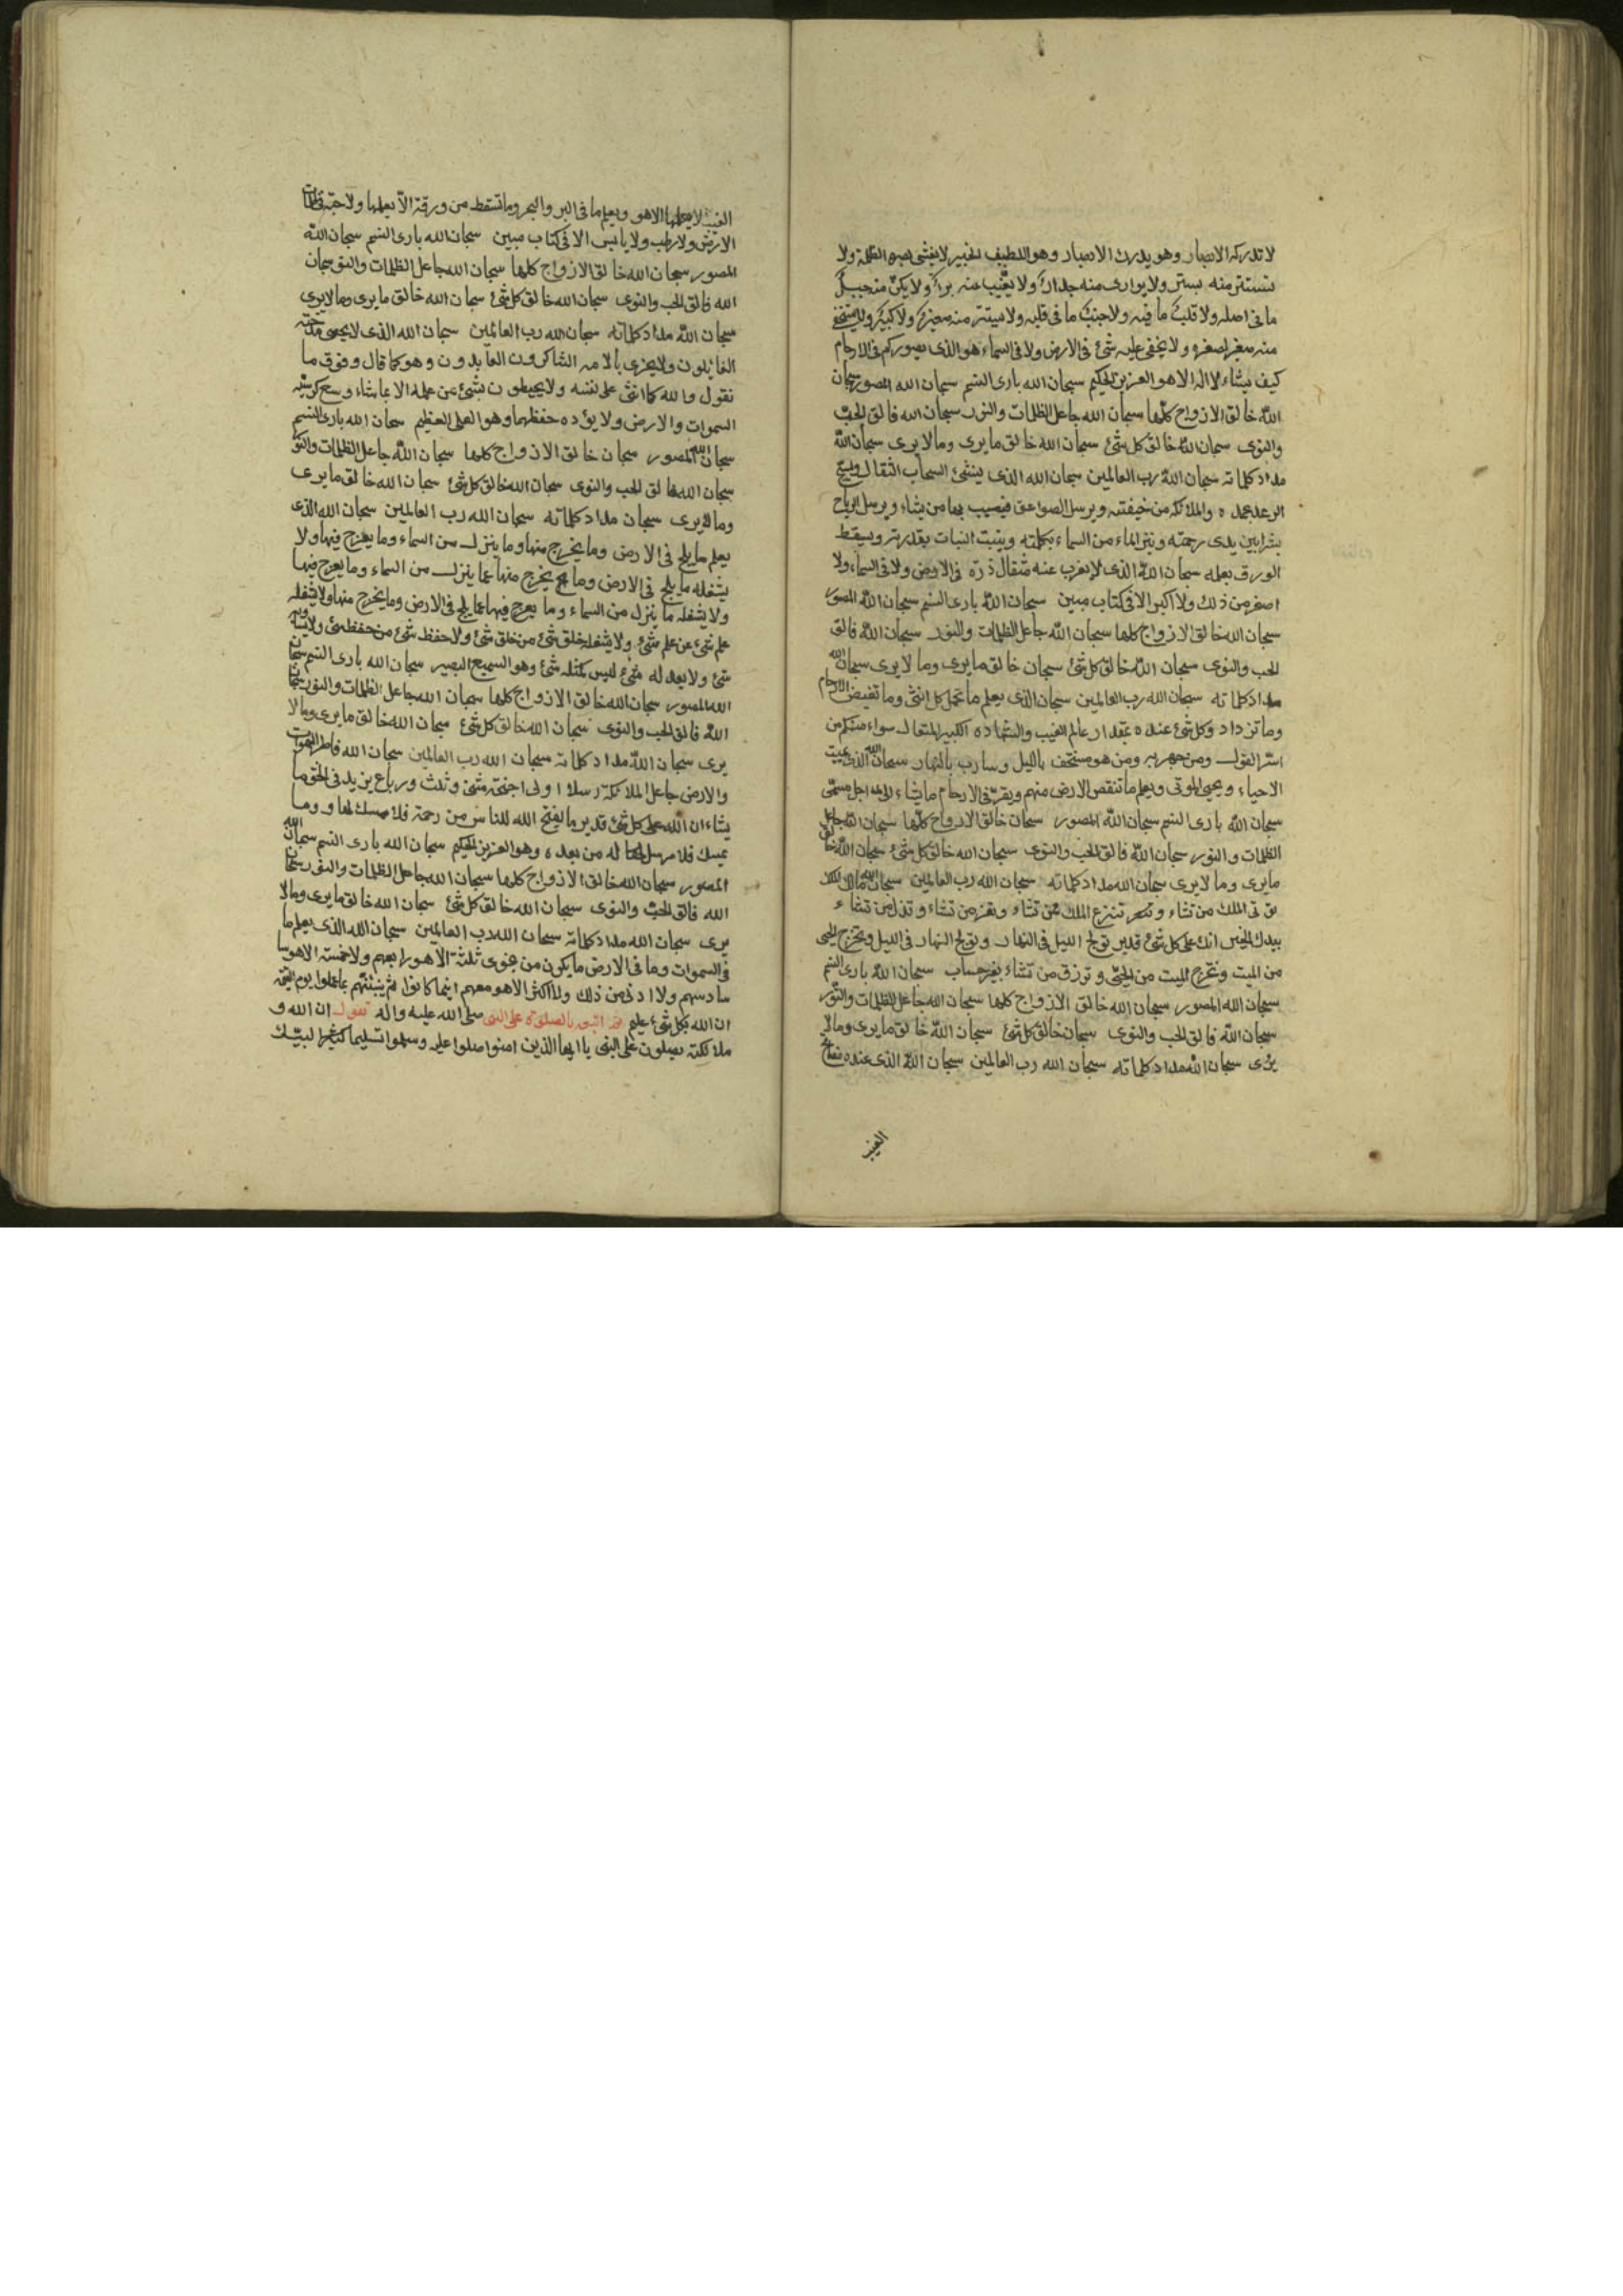 لا تدركه الابصار وهو يدرك الابصار وهو اللطيف الخبير لا يغشى بصره الظلمة ولا
تستتر منه بستر ولا يوارى منه جدار ولا يغيب عنه بر ولا يكن منه جبل
ما فى اصله ولا قلب ما فيه ولا جنب ما فى قلبه ولا يستتر منه صغير ولا كبير ولا يستخفى
منه صغير لصغره ولا يخفى عليه شئ فى الارض ولا فى السماء هو الذى يصوركم فى الارحام
كيف يشاء لا اله الا هو العزيز الحكيم سبحان الله بارى النسم سبحان الله المصور سبحان
الله خالق الازواج كلها سبحان الله جاعل الظلمات والنور سبحان الله فالق الحب
والنوى سبحان الله خالق كل شئ سبحان الله خالق ما يرى وما لا يرى سبحان الله
مداد كلماته سبحان الله رب العالمين سبحان الله الذى ينشئ السحاب الثقال ويسبح
الرعد بحمده والملائكة من خيفته ويرسل الصواعق فيصيب بها من يشاء ويرسل الرياح
بشرا بين يدى رحمته وينزل الماء من السماء بكلمته وينبت النبات بقدرته ويسقط
الورق بعلمه سبحان الله الذى لا يعزب عنه مثقال ذرة فى الارض ولا فى السماء ولا
اصغر من ذلك ولا اكبر الا فى كتاب مبين سبحان الله بارى النسم سبحان الله المصور
سبحان الله خالق الازواج كلها سبحان الله جاعل الظلمات والنور سبحان الله فالق
الحب والنوى سبحان الله خالق كل شئ سبحان خالق ما يرى وما لا يرى سبحان الله
مداد كلماته سبحان الله رب العالمين سبحان الذى يعلم ما تحمل كل انثى وما تغيض الارحام
وما تزداد وكل شئ عنده بمقدار عالم الغيب والشهادة الكبير المتعال سواء منكم من
اسر القول ومن جهر به ومن هو مستخف بالليل وسارب بالنهار سبحان الله الذى يميت
الاحياء ويحيى الموتى ويعلم ما تنقص الارض منهم ويقر فى الارحام ما يشاء الى اجل مسمى
سبحان الله بارى النسم سبحان الله المصور سبحان خالق الازواج كلها سبحان الله جاعل
الظلمات والنور سبحان الله فالق الحب والنوى سبحان الله خالق كل شئ سبحان الله خالق
ما يرى وما لا يرى سبحان الله مداد كلماته سبحان الله رب العالمين سبحان الله مالك الملك
تؤتى الملك من تشاء وتنزع الملك ممن تشاء وتعز من تشاء وتذل من تشاء
بيدك الخير انك على كل شئ قدير تولج الليل فى النهار وتولج النهار فى الليل وتخرج الحى
من الميت وتخرج الميت من الحى وترزق من تشاء بغير حساب سبحان الله بارى النسم
سبحان الله المصور سبحان الله خالق الازواج كلها سبحان الله جاعل الظلمات والنور
سبحان الله فالق الحب والنوى سبحان خالق كل شئ سبحان الله خالق ما يرى وما لا
يرى سبحان الله مداد كلماته سبحان الله رب العالمين سبحان الله الذى عنده مفاتح
الغيب
الغيب لا يعلمها الا هو ويعلم ما فى البر والبحر وما تسقط من ورقة الا يعلمها ولا حبة فى ظلمات
الارض ولا رطب ولا يابس الا فى كتاب مبين سبحان الله بارى النسم سبحان الله
المصور سبحان الله خالق الازواج كلها سبحان الله جاعل الظلمات والنور سبحان
الله فالق الحب والنوى سبحان الله خالق كل شئ سبحان الله خالق ما يرى وما لا يرى
سبحان الله مداد كلماته سبحان الله رب العالمين سبحان الله الذى لا يحصى مدحته
القائلون ولا يجزى بآلائه الشاكرون العابدون وهو كما قال وفوق ما
نقول والله كما اثنى على نفسه ولا يحيطون بشئ من علمه الا بما شاء وسع كرسيه
السموات والارض ولا يؤده حفظهما وهو العلى العظيم سبحان الله بارى النسم
سبحان الله المصور سبحان خالق الازواج كلها سبحان الله جاعل الظلمات والنور
سبحان الله فالق الحب والنوى سبحان الله خالق كل شئ سبحان الله خالق ما يرى
وما لا يرى سبحان مداد كلماته سبحان الله رب العالمين سبحان الله الذى
يعلم ما يلج فى الارض وما يخرج منها وما ينزل من السماء وما يعرج فيها ولا
يشغله ما يلج فى الارض وما يخرج منها عما ينزل من السماء وما يعرج فيها
ولا يشغله ما ينزل من السماء وما يعرج فيها عما يلج فى الارض وما يخرج منها ولا يشغله
علم شئ عن علم شئ ولا يشغله خلق شئ من خلق شئ ولا حفظ شئ من حفظ شئ ولا يساويه
شئ ولا يعدله شئ ليس كمثله شئ وهو السميع البصير سبحان الله بارى النسم سبحان
الله المصور سبحان الله خالق الازواج كلها سبحان الله جاعل الظلمات والنور سبحان
الله فالق الحب والنوى سبحان الله خالق كل شئ سبحان الله خالق ما يرى وما لا
يرى سبحان الله مداد كلماته سبحان الله رب العالمين سبحان الله فاطر السموات
والارض جاعل الملائكة رسلا اولى اجنحة مثنى وثلث ورباع يزيد فى الخلق ما
يشاء ان الله على كل شئ قدير ما يفتح الله للناس من رحمة فلا ممسك لها وما
يمسك فلا مرسل له من بعده وهو العزيز الحكيم سبحان الله بارى النسم سبحان الله
المصور سبحان الله خالق الازواج كلها سبحان الله جاعل الظلمات والنور سبحان
الله فالق الحب والنوى سبحان الله خالق كل شئ سبحان الله خالق ما يرى وما لا
يرى سبحان الله مداد كلماته سبحان الله رب العالمين سبحان الله الذى يعلم ما
فى السموات وما فى الارض ما يكون من نجوى ثلثة الا هو رابعهم ولا خمسة الا هو سا
سادسهم ولا ادنى من ذلك ولا اكثر الا هو معهم اينما كانوا ثم ينبئهم بما عملوا يوم القيمة
ان الله بكل شئ عليم ثم اتبع بالصلوة على النبى صلى الله عليه واله تقول ان الله و
ملائكته يصلون على النبى يا ايها الذين امنوا صلوا عليه وسلموا تسليما لبيك